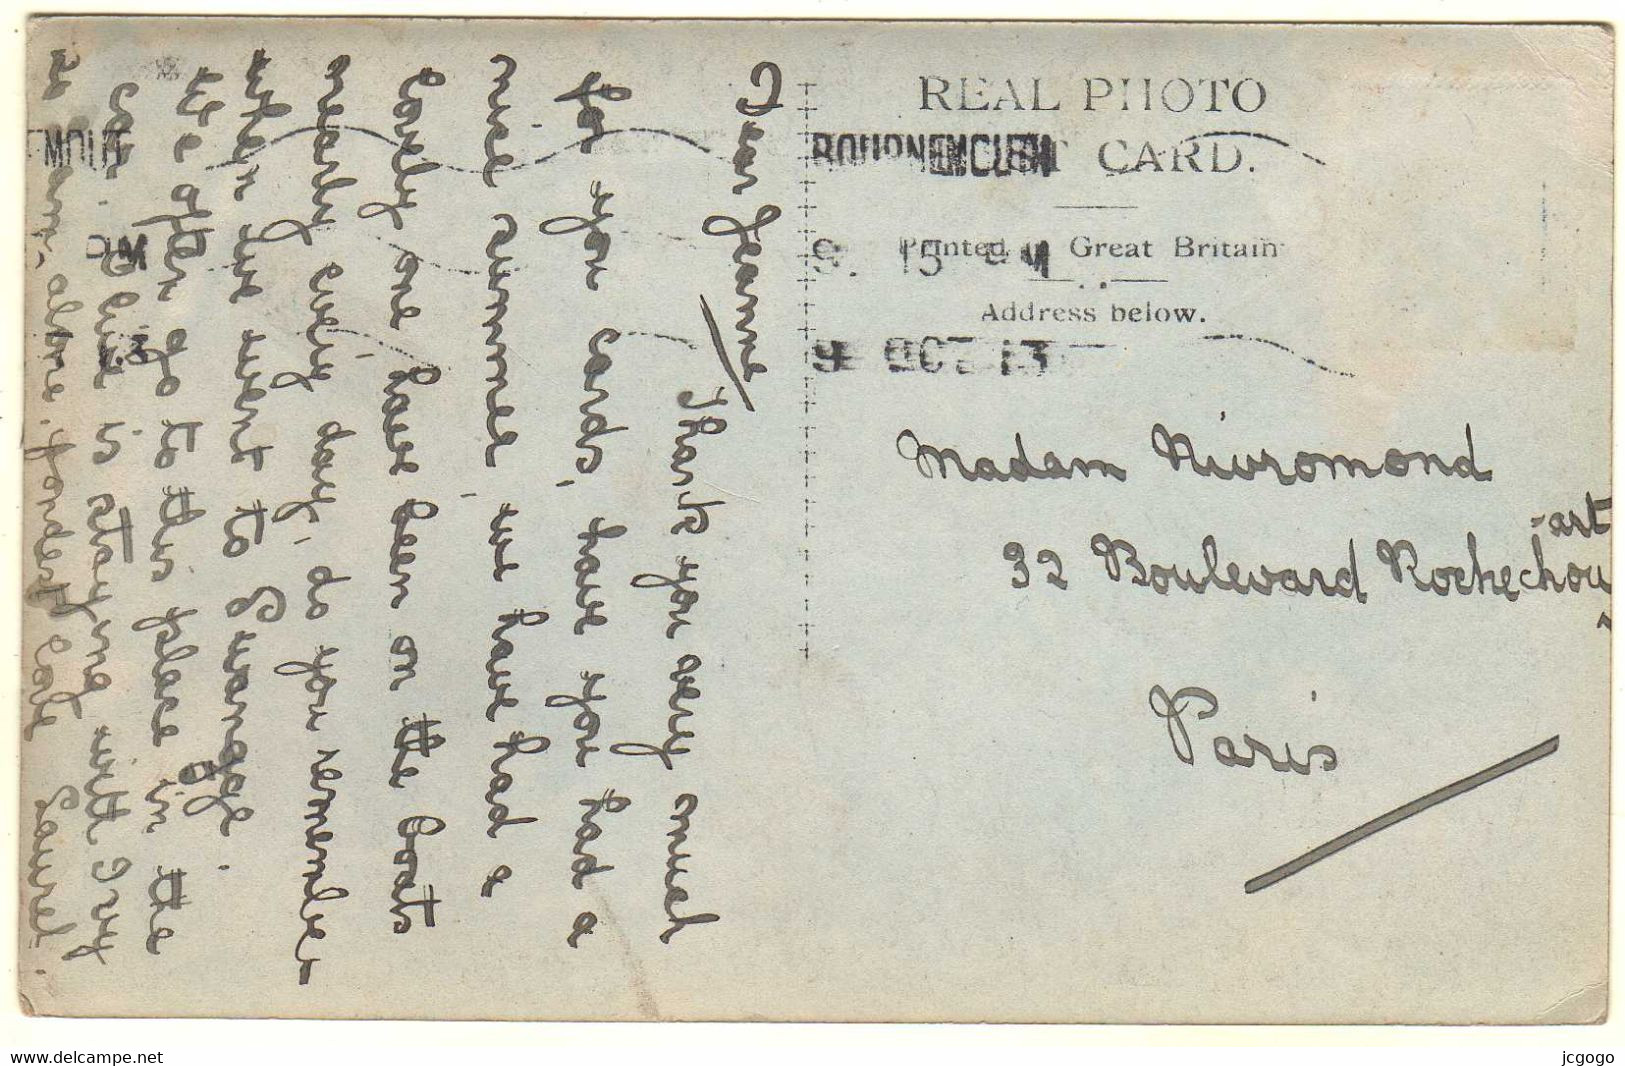 Dear Jeanne
Thank you very much
for your cards, have you had a
nice summer, we have had a
lovely one have been on the boats
nearly every day, do you remember
when we went to Swanage.
We often go to this place in the
car. Elsie is staying with Ivy
alone. fondest love Laurel.
REAL PHOTO
POST CARD.
Printed in Great Britain
Address below.
BOURNEMOUTH
9. 15 PM
9 OCT 13
EMOUT
PM
Madam Nivromond
32 Boulevard Rochechou
-art
Paris
www.delcampe.net
jcgogo